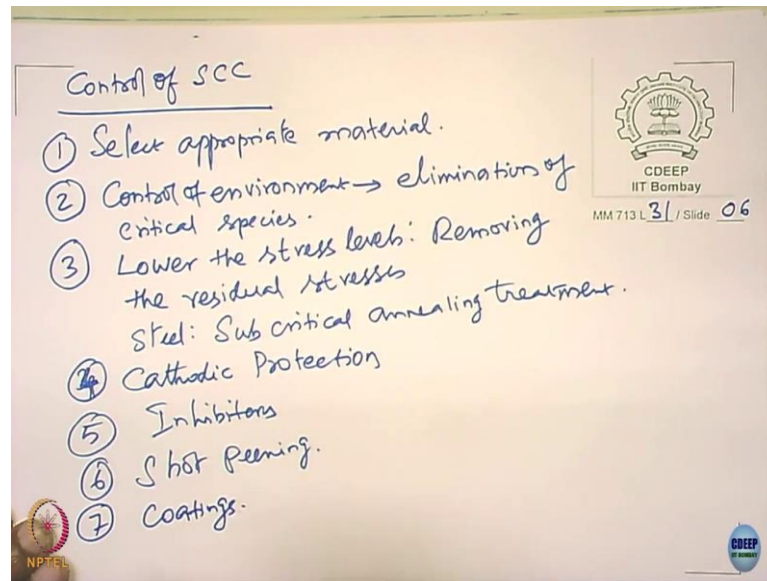 Control of SCC
① Select appropriate material.
② Control of environment → elimination of
critical species.
③ Lower the stress levels: Removing
the residual stresses
Steel: Sub critical annealing treatment.
④ Cathodic Protection
⑤ Inhibitors
⑥ Shot peening.
⑦ Coatings.
CDEEP
IIT Bombay
MM 713 L 31 / Slide 06
NPTEL
CDEEP
IIT BOMBAY